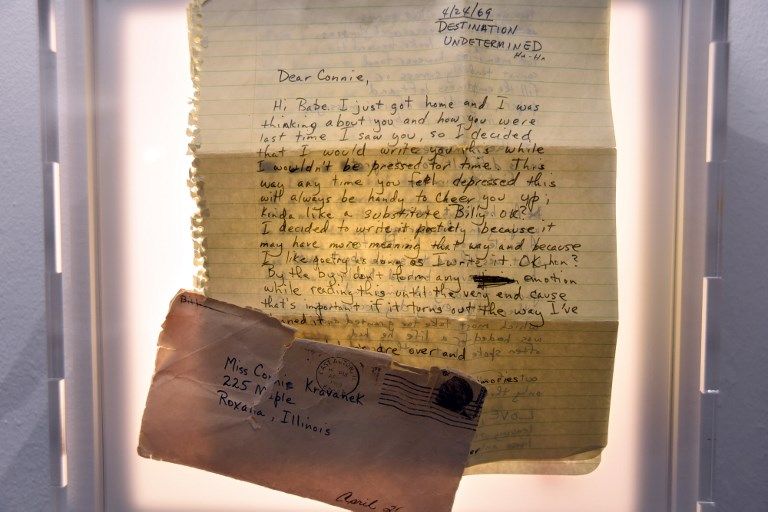 4/24/69
DESTINATION
UNDETERMINED
Ha-Ha
Dear Connie,
Hi Babe. I just got home and I was
thinking about you and how you were
last time I saw you, so I decided
that I would write you this while
I wouldn't be pressed for time. This
way any time you feel depressed this
will always be handy to cheer you up;
kinda like a substitute Billy OK?
I decided to write it poeticly because it
may have more meaning that way and because
I like poetry as long as I write it. OK, hon?
By the by, don't form any emotion
while reading this until the very end cause
that's important if it turns out the way I've
it
are over and
Miss Connie Kravanek
225 Maple
Roxana, Illinois
April